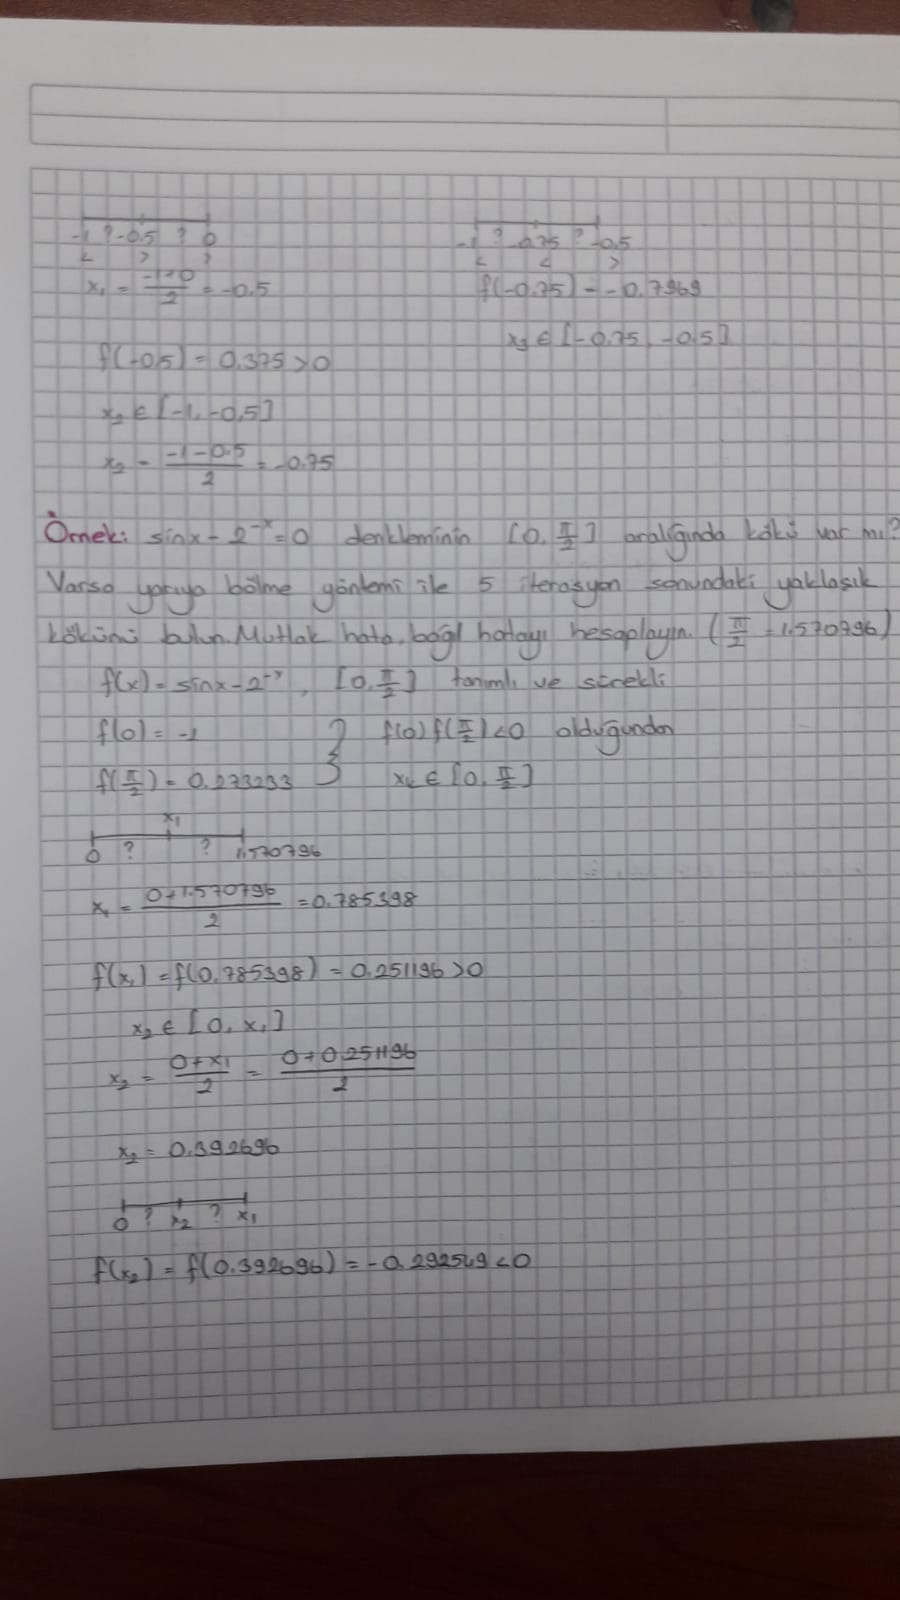 -1 ? -0.5 ? 0
< > >
x₁ = (-1+0)/2 = -0.5
f(-0.5) = 0.375 > 0
x₂ ∈ [-1, -0.5]
x₂ = (-1-0.5)/2 = -0.75
-1 ? -0.75 ? -0.5
< < >
f(-0.75) = -0.7969
x₃ ∈ [-0.75, -0.5]
Örnek: sinx - 2⁻ˣ = 0 denkleminin [0, π/2] aralığında kökü var mı?
Varsa yarıya bölme yöntemi ile 5 iterasyon sonundaki yaklaşık
kökünü bulun. Mutlak hata, bağıl hatayı hesaplayın. (π/2 = 1.570796)
f(x) = sinx - 2⁻ˣ, [0, π/2] tanımlı ve sürekli
f(0) = -1 } f(0) f(π/2) < 0 olduğundan
f(π/2) = 0.273233 } x₁ ∈ [0, π/2]
x₁
0 ? ? 1,570796
x₁ = (0+1.570796)/2 = 0.785398
f(x₁) = f(0.785398) = 0.251196 > 0
x₂ ∈ [0, x₁]
x₂ = (0+x₁)/2 = (0+0.251196)/2
x₂ = 0.392696
0 ? x₂ ? x₁
f(x₂) = f(0.392696) = -0.292549 < 0